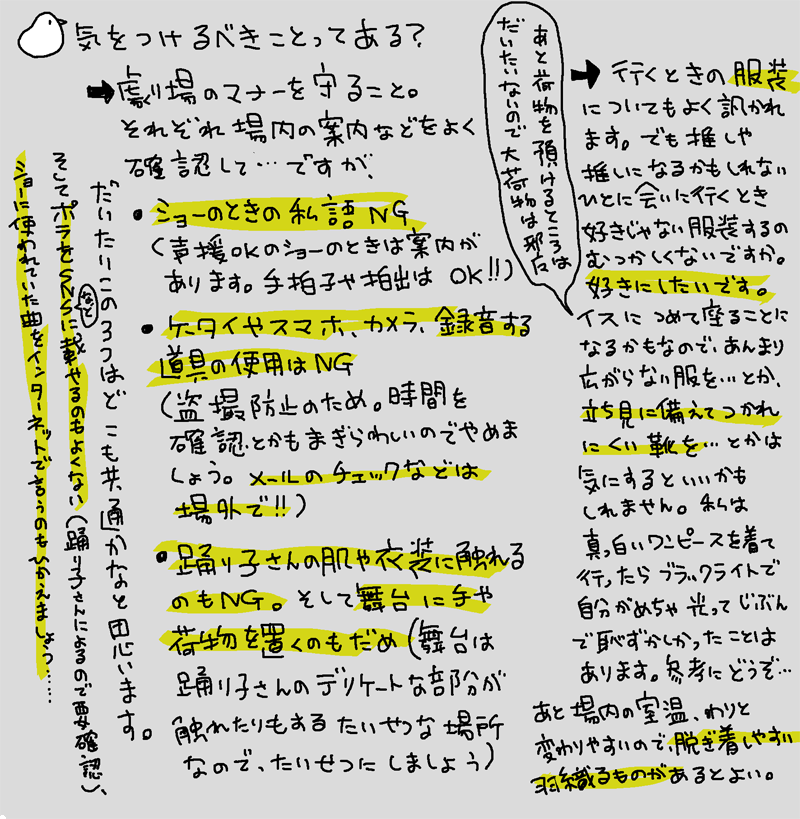 気をつけるべきことってある?
➡劇場のマナーを守ること。
それぞれ場内の案内などをよく
確認して…ですが、
・ショーのときの私語NG
(声援OKのショーのときは案内が
あります。手拍子や拍出は OK!!)
・ケータイやスマホ、カメラ、録音する
道具の使用はNG
(盗撮防止のため。時間を
確認とかもまぎらわしいのでやめま
しょう。メールのチェックなどは
場外で!!)
・踊り子さんの肌や衣装に触れる
のもNG。そして舞台に手や
荷物を置くのもだめ(舞台は
踊り子さんのデリケートな部分が
触れたりもするたいせつな場所
なので、たいせつにしましょう)
だいたいこの3つはどこも共通かなと思います。
そしてポラをSNSなどに載せるのもよくない(踊り子さんによるので要確認)、
ショーに使われていた曲をインターネットで言うのもひかえましょう……
➡行くときの服装
についてもよく訊かれ
ます。でも推しや
推しになるかもしれない
ひとに会いに行くとき
好きじゃない服装するの
むつかしくないですか。
好きにしたいです。
イスにつめて座ることに
なるかもなので、あんまり
広がらない服を…とか、
立ち見に備えてつかれ
にくい靴を…とかは
気にするといいかも
しれません。私は
真っ白いワンピースを着て
行ったらブラックライトで
自分がめちゃ光ってじぶん
で恥ずかしかったことは
あります。参考にどうぞ…
あと場内の室温、わりと
変わりやすいので、脱ぎ着しやすい
羽織るものがあるとよい。
あと荷物を預けるところは
だいたいないので大荷物は邪魔